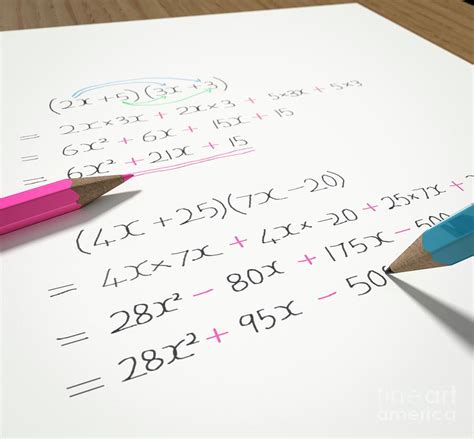 (2x+5)(3x+3)
= 2x×3x + 2x×3 + 5×3x + 5×3
= 6x² + 6x + 15x + 15
= 6x² + 21x + 15
(4x+25)(7x-20)
= 4x×7x + 4x×-20 + 25×7x +
= 28x² - 80x + 175x - 500
= 28x² + 95x - 50
fine art
america